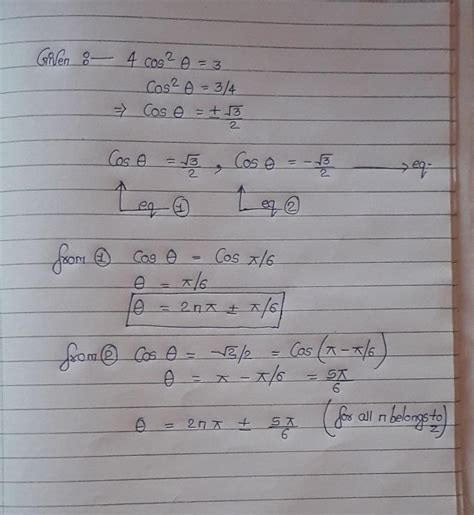 Given :— 4 cos² θ = 3
Cos² θ = 3/4
⇒ Cos θ = ± √3/2
Cos θ = √3/2 , Cos θ = -√3/2 ⟶ eq-
eq ① eq ②
from ① Cos θ = Cos π/6
θ = π/6
θ = 2nπ ± π/6
from ② Cos θ = -√3/2 = Cos (π - π/6)
θ = π - π/6 = 5π/6
θ = 2nπ ± 5π/6 (for all n belongs to Z)